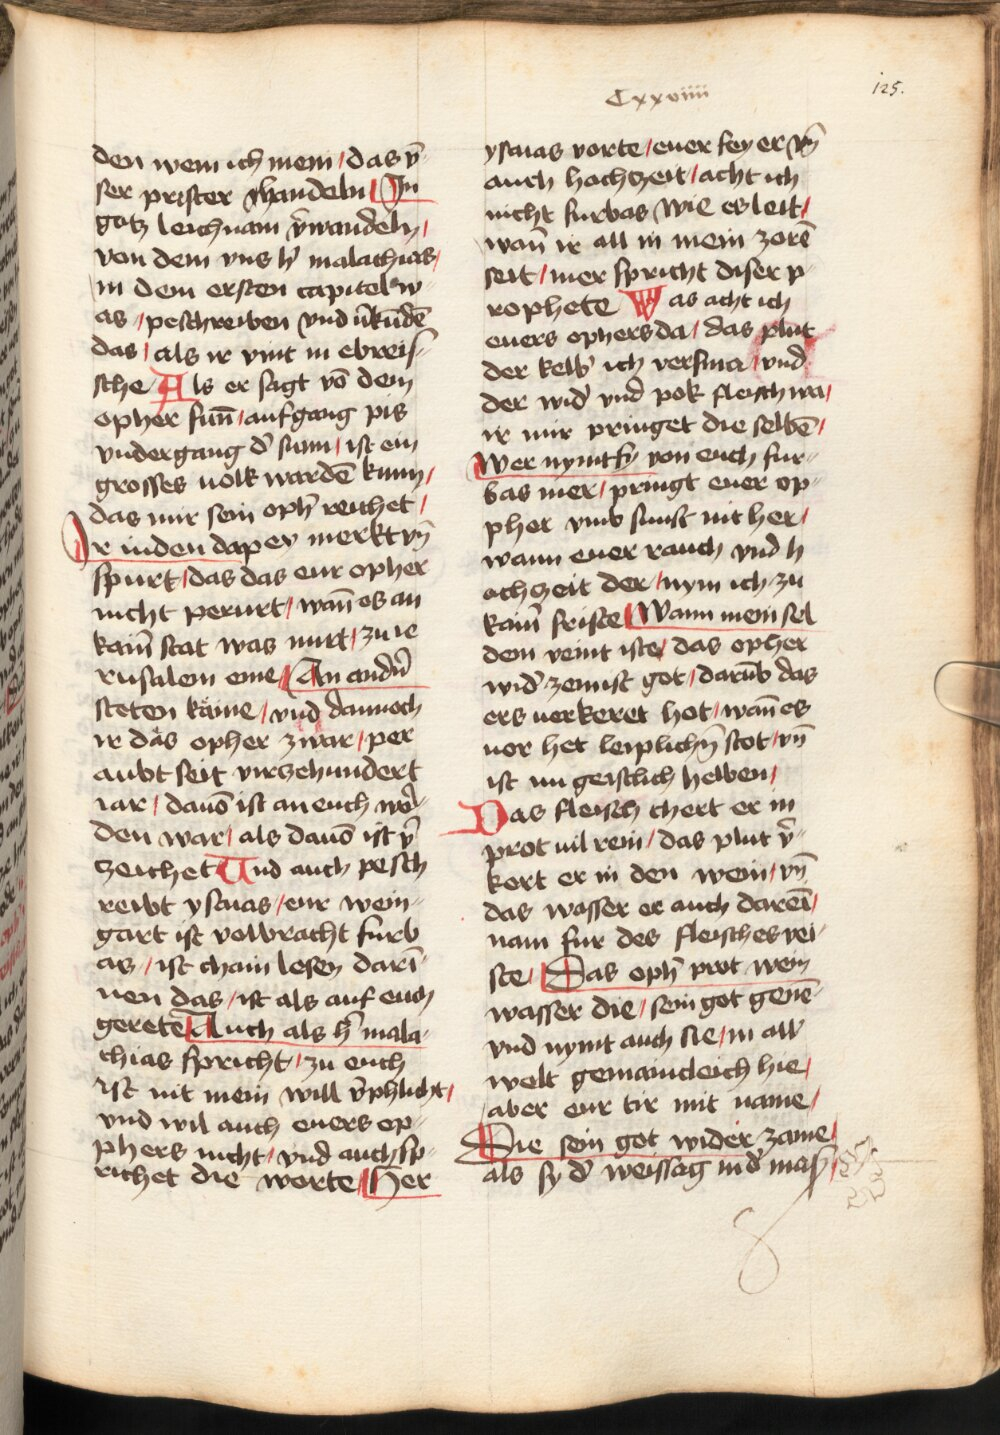 Cxxviiii
125.
den wem ich mein / das v̄
ser prister ẏhandeln / In
gotz leichnam v̄wandeln /
von dem vns h̄ malachias /
in dem ersten capitel w
as / peschreiben vnd v̄kūdē
das / als ir vint in ebreis
sche Als er sagt vō dem
opher sun̄ / aufgang pis
vndergang d̄ sunn / ist ein
grosses uolk wardē kunn /
das mir sein oph̄ reichet /
Ir inden daper merkt vn̄
spurt / das das eur opher
nicht perurt / wan̄ es an
kain̄ stat was nurt / zu ie
rusalem eine / An andn̄
steten kaine / vnd dannoch
ir das opher zwar / per
aubt seit virzehundert
iar / dauō ist an euch wor̄
den war / als dauō ist v̄
zeichet Und auch pesch
reibt yscuas / eur wein
gart ist volbracht furb
as / ist chain lesen darī
nen das / ist als auf euch
gerete / Auch als h̄ mala
chias spricht / zu euch
ist nit mein will v̄phlicht /
vnd wil auch euers op
phers nicht / vnd auch sp
richet die worte / Her
yscuas vorte / euer feyer vn̄
auch hochtzeit / acht ich
nicht furbas wie es leit /
wan̄ ir all in mein zorē
seit / mer spricht diser p
rophete Was acht ich
euers ophers da / das plut
der kelb̄ ich versma / vnd
der wid̄ vnd pok fleisch wa /
ir mir pringet die selbē /
Wer nymt sy von euch fur
bas mer / pringt euer op
pher vmb sunst nit her /
wann euer rauch vnd h
ochzeit der / nym ich zu
kain̄ friste / Wann mein sel
dem veint iste / das opher
wid̄ zennst got / darūb das
ers uerkeret hot / wan̄ es
uor het leiplichn̄ stot / vn̄
ist nu geistlich helben /
Das fleisch chert er in
prot uil rein / das plut v̄
kert er in den wein / vn̄
das wasser er auch darein̄ /
nam fur des fleisches vei
ste / Das oph̄ prot wein
wasser die / sein got genē
vnd nymt auch sie / in all
welt gemaincleich hie /
aber eur tir mit name /
Die sein got wider zame /
als sy d̄ weissag in d̄ mas /